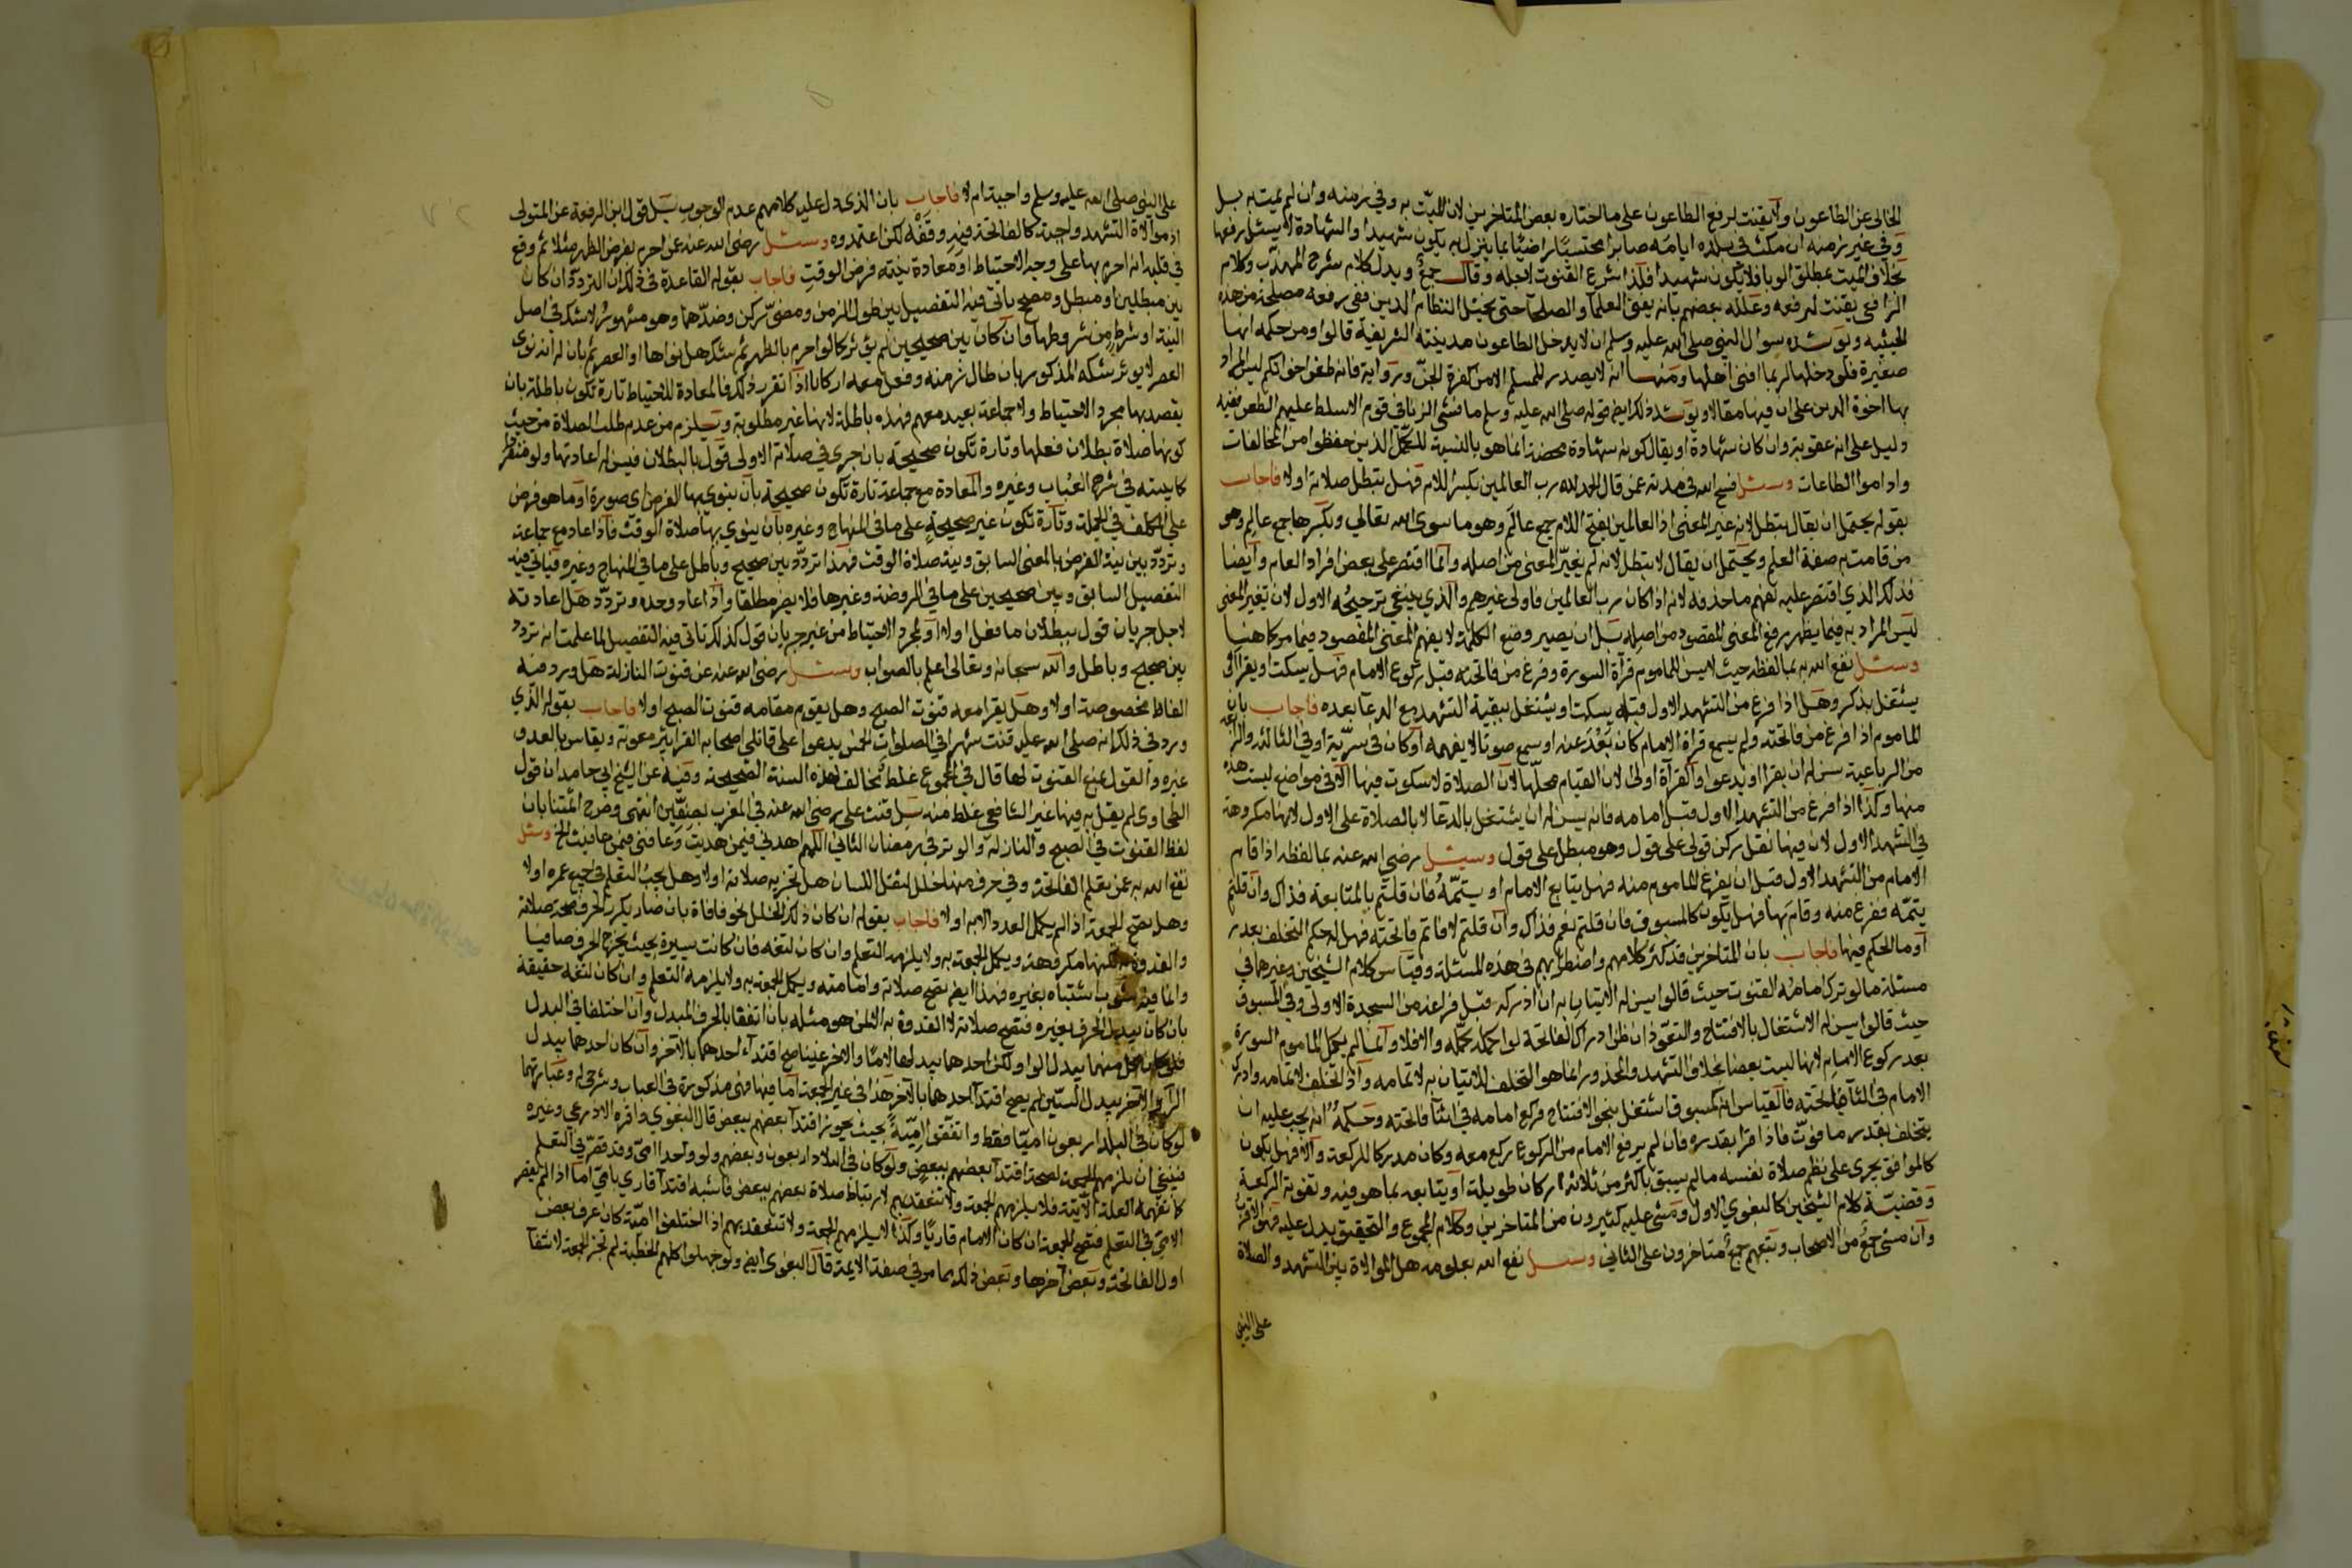 الخالى عن الطاعون ولا يقنت لرفع الطاعون على ما اختاره بعض المتاخرين لان الميت به وفي زمنه وان لم يمت به بل
وفي غير زمنه ان مكث في بلده ايامه صابرا محتسبا راضيا بما ينزل به يكون شهيدا والشهادة لا يسئل رفعها
بخلاف الميت بمطلق الوبا فلا يكون شهيدا فلذا شرع القنوت لاجله وقال جمع ويدل كلام شرح المهذب وكلام
الرافعي يقنت لرفعه وعلله بعضهم بانه يفنى العلما والصلحا حتى يختل انتظام الدين ففى رفعه مصلحة من هذه
الحيثيه ويؤيده سوال النبي صلى الله عليه وسلم ان لا يدخل الطاعون مدينته الشريفة قالوا ومن حكمه انها
صغيرة فلو دخلها لربما افنى اهلها ومنها انه لا يصدر للمسلم الا من كفرة الجن ورواية فانه طعن اخوانكم ليس المراد
بها اخوة الدين على ان فيها مقالا ويؤيد ذلك ايض قوله صلى الله عليه وسلم ما فشى الزنا في قوم الا سلط عليهم الطعن ففيه
دليل على انه عقوبة وان كان شهادة او يقال كونه شهادة محضة انما هو بالنسبة للكمل الذين حفظوا من المخالفات
واداموا الطاعات وسئل فسح الله في مدته عمن قال الحمد لله رب العالمين بكسر اللام فهل تبطل صلاته اولا فاجاب
بقوله يحتمل ان يقال تبطل لانه غير المعنى اذ العالمين بفتح اللام جمع عالم وهو ما سوى الله تعالى وبكسرها جمع عالم وهو
من قامت به صفة العلم ويحتمل ان يقال لا تبطل لانه لم يغير المعنى من اصله وانما اقتصر على بعض افراد العام وايضا
فذلك الذي اقتصر عليه يفهم ما حذفه لانه اذا كان رب العالمين فاولى غيرهم والذي ينبغي ترجيحه الاول لان تغير المعنى
ليس المراد به فيما يظهر رفع المعنى المقصود من اصله بل ان يصير وضع الكلمة لا يفهم المعنى المقصود فيما مر كما هنا
وسئل نفع الله به بما لفظه حيث لا يسن للماموم قراة السورة وفرغ من فاتحته قبل ركوع الامام فهل يسكت او يقرا او
يشتغل بذكر وهل اذا فرغ من التشهد الاول قبله يسكت او يشتغل ببقية التشهد مع الدعا بعده فاجاب بان
الماموم اذا فرغ من فاتحته ولم يسمع قراة الامام كان بعد عنه او سمع صوتا لا يفهمه او كان في سرية او في الثالثة والرابعة
من الرباعية سن له ان يقرا او يدعوا والقراة اولى لان القيام محلها لان الصلاة لا سكوت فيها الا في مواضع ليست هذه
منها وكذا اذا فرغ من التشهد الاول قبل امامه فانه يسن له ان يشتغل بالدعا لا بالصلاة على الال لانها مكروهة
في التشهد الاول لان فيها نقل ركن قولى على قول وهو مبطل على قول وسئل رضي الله عنه بما لفظه اذا قام
الامام من التشهد الاول قبل ان يفرغ الماموم منه فهل يتابع الامام او يتمه فان قلتم بالمتابعة فذاك وان قلتم
يتمه ففرغ منه وقام بها فهل يكون كالمسبوق فان قلتم نعم فذاك وان قلتم لا فاتم فاتحته فهل له حكم التخلف بعذر
او ما الحكم فيها فاجاب بان المتاخرين قد كثر كلامهم واضطرابهم في هذه المسئلة وقياس كلام الشيخين وغيرهما في
مسئلة ما لو ترك امامه القنوت حيث قالوا يسن له الاتيان به ان ادركه قبل فراغه من السجدة الاولى وفي المسبوق
حيث قالوا يسن له الاشتغال بالافتتاح والتعوذ ان ظن ادراك الفاتحة لو اكمله يكمله والا فلا وانما لم يكمل الماموم السورة
بعد ركوع الامام لانها ليست بعضا بخلاف التشهد والمحذور انما هو التخلف للاتيان به لا تمامه واذا تخلف لاتمامه وادرك
الامام في اثنا فاتحته فالقياس انه كمسبوق اشتغل بنحو الافتتاح فركع امامه في اثنا فاتحته وحكمه انه يجب عليه ان
يتخلف بقدر ما فوت فاذا قرا بقدره فان لم يرفع الامام من الركوع ركع معه وكان مدركا للركعة والا فهل يكون
كالموافق يجري على نظم صلاة نفسه ما لم يسبق باكثر من ثلاثة اركان طويلة او يتابعه بما هو فيه وتفوته الركعة
وقضية كلام الشيخين كالبغوي الاول ومشى عليه كثيرون من المتاخرين وكلام المجموع والتحقيق يدل عليه فهو الاقرب
وان مشى جمع من الاصحاب وتبعهم جمع متاخرون على الثاني وسئل نفع الله بعلومه هل الموالاة بين التشهد والصلاة
على النبي
على النبي صلى الله عليه وسلم واجبة ام لا فاجاب بان الذي دل عليه كلامهم عدم الوجوب بل قول ابن الرفعة عن المتولى
ان موالاة التشهد واجبة كالفاتحة فيه وقفة لكن اعتمدوه وسئل رضى الله عنه عن احرم بفرض الظهر مثلا ثم وقع
في قلبه انه احرم بها على وجه الاحتياط او معادة بنيته فرض الوقت فاجاب بقوله القاعدة في ذلك ان التردد ان كان
بين مبطلين او مبطل ومصح ياتى فيه التفصيل بين طول الزمن ومضى ركن وضدهما وهو مشهور لا شك في اصل
النية او شرط من شروطها وان كان بين صحيحين لم يؤثر كما لو احرم بالظهر ثم شك هل نواها او العصر ثم بان له انه نوى
العصر لا يوثر شكه المذكور بان طال زمنه وفعل معه اركانا اذا تقرر ذلك فالمعادة للاحتياط تارة تكون باطلة بان
يقصد بها مجرد الاحتياط ولا جماعة يعيد معهم فهذه باطلة لانها غير مطلوبة ويلزم من عدم طلب الصلاة من حيث
كونها صلاة بطلان فعلها وتارة تكون صحيحة بان جرى في صلاته الاولى قول بالبطلان فيسن له اعادتها ولو منفردا
كما بينته في شرح العباب وغيره والمعادة مع جماعة تارة تكون صحيحة بان ينوي بها الفرض اى صورة او ما هو فرض
على المكلف في الجملة وتارة تكون غير صحيحة على ما في المنهاج وغيره بان ينوي بها صلاة الوقت فاذا اعاد مع جماعة
وتردد بين نية الفرض بالمعنى السابق ونية صلاة الوقت فهذا تردد بين صحيح وباطل على ما في المنهاج وغيره فياتي فيه
التفصيل السابق وبين صحيحين على ما في الروضة وغيرها فلا يضر مطلقا واذا اعاد وحده وتردد هل اعادته
لاجل جريان قول ببطلان ما فعل اولا او لمجرد الاحتياط من غير جريان قول كذلك تاتى فيه التفصيل لما علمت انه تردد
بين صحيح وباطل والله سبحانه وتعالى اعلم بالصواب وسئل رضى الله عنه عن قنوت النازلة هل ورد فيه
الفاظ مخصوصة اولا وهل يقرا معه قنوت الصبح وهل يقوم مقامه قنوت الصبح اولا فاجاب بقوله الذي
ورد في ذلك انه صلى الله عليه قنت شهرا في الصلوات الخمس يدعوا على قاتلى اصحابه القرا ببئر معونة ويقاس بالعدو
غيره والقول بمنع القنوت لها قال في المجموع غلط مخالف لهذه السنة الصحيحة وفيه عن الشيخ ابي حامد ان قول
الطحاوى لم يقل به فيها غير الشافعي غلط منه بل قنت علي رضى الله عنه في المغرب بصفين انتهى وصرح ائمتنا بان
لفظ القنوت في الصبح والنازلة والوتر في رمضان الثاني اللهم اهدني فيمن هديت وعافنى فيمن عافيت الخ وسئل
نفع الله به عمن يعلم الفاتحة وفي حرف منها خلل لثقل اللسان هل تجزيه صلاته اولا وهل يجب التعلم في جميع عمره اولا
وهل تصح الجمعة اذا لم يكمل العدد الا به اولا فاجاب بقوله ان كان ذلك الخلل نحو فافاة بان صار يكرر الحرف صحة صلاته
والقدوة به لكنها مكروهة ويكمل الجمعة به ولا يلزمه التعلم وان كان لثغة فان كانت يسيرة بحيث يخرج الحرف صافيا
وانما فيه شوب اشتباه بغيره فهذا ايض تصح صلاته وامامته ويكمل الجمعة به ولا يلزمه التعلم وان كان لثغة حقيقة
بان كان يبدل الحرف بغيره فتصح صلاته لا القدوة به الا لمن هو مثله بان اتفقا بالحرف المبدل وان اختلفا في البدل
فلو كان كل منهما يبدل الرا ولكن احدهما يبدلها لاما والاخر غينا صح اقتداء احدهما بالآخر وان كان احدهما يبدل
الرا والآخر يبدل السين لم يصح اقتدا احدهما بالآخر هذا في غير الجمعة اما فيها فهى مذكورة في العباب وشرحى له وعبارتهما
لو كان في البلد اربعون اميا فقط واتفقوا امية بحيث يجوز اقتدا بعضهم ببعض قال البغوي واقره الاذرعي وغيره
فينبغي ان يلزمهم الجمعة لصحة اقتدا بعضهم ببعض ولو كان في البلاد اربعون وبعضهم ولو واحدا امى وقد قصر في التعلم
كما تفهمه العلة الآتية فلا يلزمهم الجمعة ولا تنعقد بهم لارتباط صلاة بعضهم ببعض فاشبه اقتدا قاري بامي اما اذا لم يقصر
الامى في التعلم فتصح الجمعة ان كان الامام قاريا وكذا لا يلزمهم الجمعة ولا تنعقد بهم اذا اختلفوا امية كان عرف بعض
اول الفاتحة وبعض آخرها وبعض ذلك بما مر في صفة الايمة قال البغوى ايض ولو جهلوا كلهم الخطبة لم تجز الجمعة لانتفا